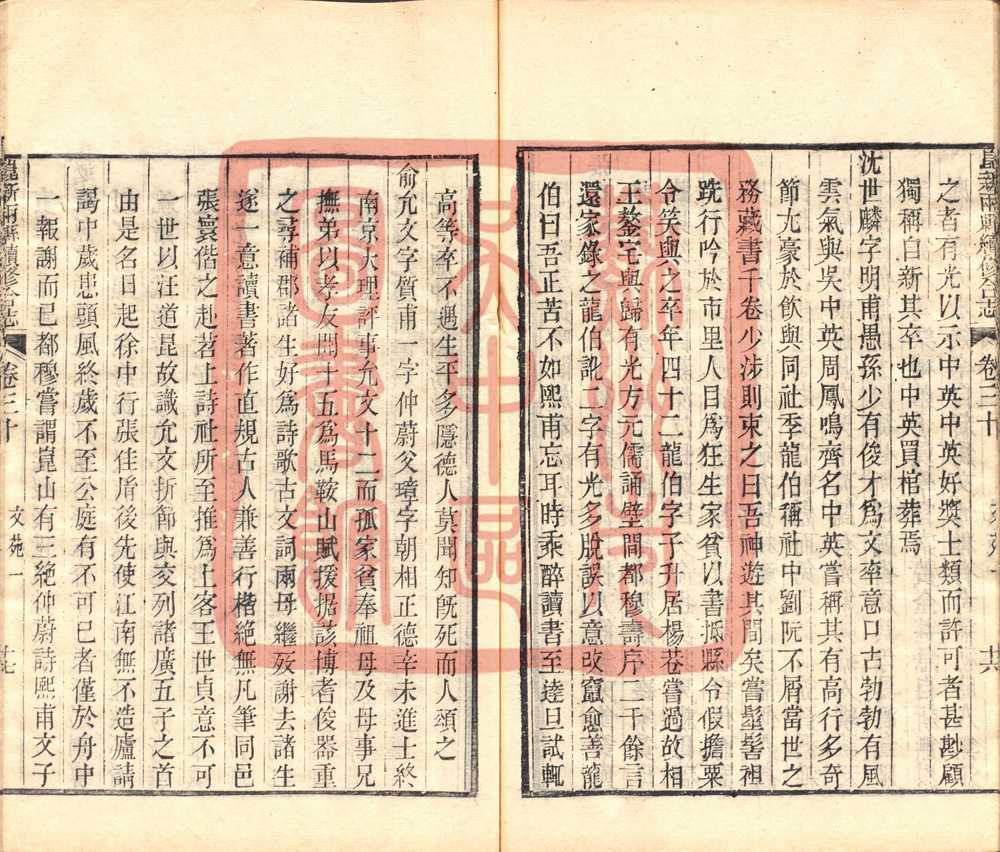 崑新兩縣續修合志
卷三十
文苑一
十六
之者有光以示中英中英好奬士類而許可者甚尠顧
獨稱自新其卒也中英買棺葬焉
沈世麟字明甫愚孫少有俊才爲文率意口占勃勃有風
雲氣與吳中英周鳳鳴齊名中英嘗稱其有高行多奇
節尤豪於飲與同社季龍伯稱社中劉阮不屑當世之
務藏書千卷少涉則束之曰吾神遊其間矣嘗髽髻袒
跣行吟於市里人目爲狂生家貧以書抵縣令假擔粟
令笑與之卒年四十二龍伯字子升居楊巷嘗過故相
王鏊宅與歸有光方元儒誦壁間都穆壽序二千餘言
還家錄之龍伯訛一字有光多脫誤以意改竄愈善龍
伯曰吾正苦不如熙甫忘耳時乘醉讀書至達旦試輒
高等卒不遇生平多隱德人莫聞知旣死而人頌之
俞允文字質甫一字仲蔚父璋字朝相正德辛未進士終
南京大理評事允文十二而孤家貧奉祖母及母事兄
撫弟以孝友聞十五爲馬鞍山賦援据該博耆俊器重
之尋補郡諸生好爲詩歌古文詞兩母繼歿謝去諸生
遂一意讀書著作直規古人兼善行楷絕無凡筆同邑
張寰偕之赴苕上詩社所至推爲上客王世貞意不可
一世以汪道昆故識允文折節與交列諸廣五子之首
由是名日起徐中行張佳胤後先使江南無不造廬請
謁中歲患頭風終歲不至公庭有不可已者僅於舟中
一報謝而已都穆嘗謂崑山有三絕仲蔚詩熙甫文子
崑新兩縣續修合志
卷三十
文苑一
十七